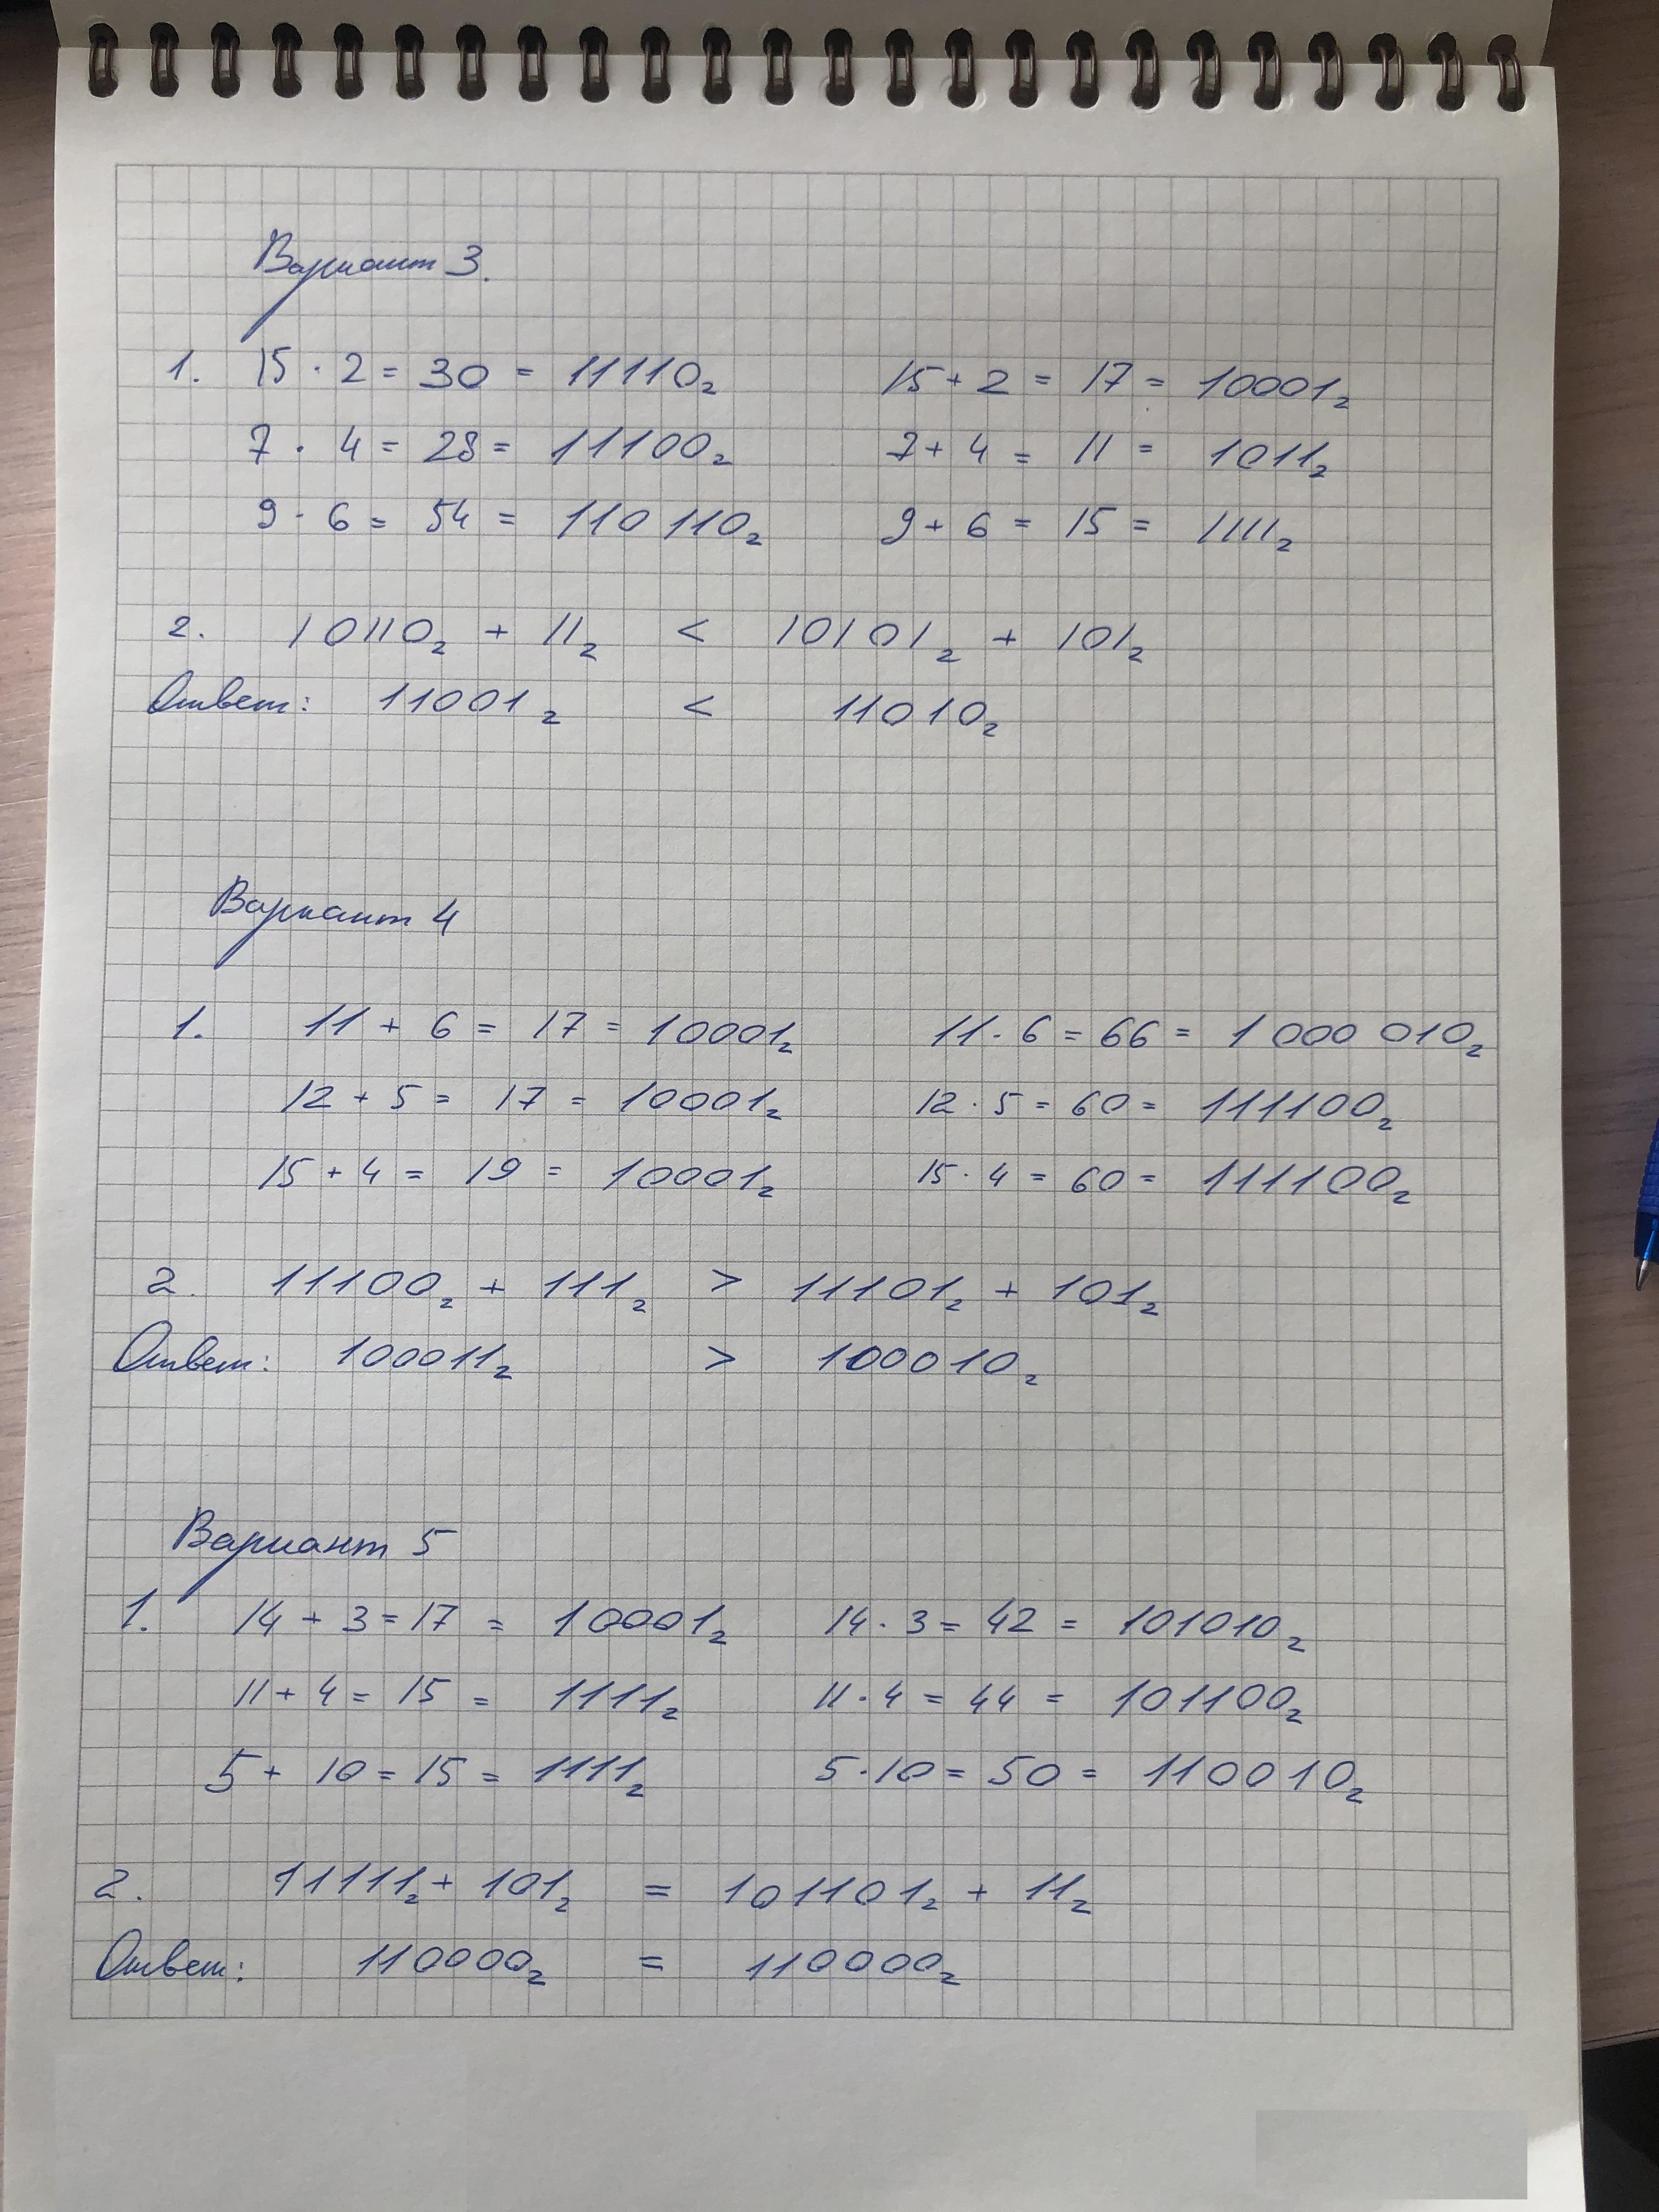 Вариант 3.
1. 15 · 2 = 30 = 11110₂ 15 + 2 = 17 = 10001₂
7 · 4 = 28 = 11100₂ 7 + 4 = 11 = 1011₂
9 · 6 = 54 = 110 110₂ 9 + 6 = 15 = 1111₂
2. 10110₂ + 11₂ < 10101₂ + 101₂
Ответ: 11001₂ < 11010₂
Вариант 4
1. 11 + 6 = 17 = 10001₂ 11 · 6 = 66 = 1 000 010₂
12 + 5 = 17 = 10001₂ 12 · 5 = 60 = 111100₂
15 + 4 = 19 = 10001₂ 15 · 4 = 60 = 111100₂
2. 11100₂ + 111₂ > 11101₂ + 101₂
Ответ: 100011₂ > 100010₂
Вариант 5
1. 14 + 3 = 17 = 10001₂ 14 · 3 = 42 = 101010₂
11 + 4 = 15 = 1111₂ 11 · 4 = 44 = 101100₂
5 + 10 = 15 = 1111₂ 5 · 10 = 50 = 110010₂
2. 11111₂ + 101₂ = 101101₂ + 11₂
Ответ: 110000₂ = 110000₂